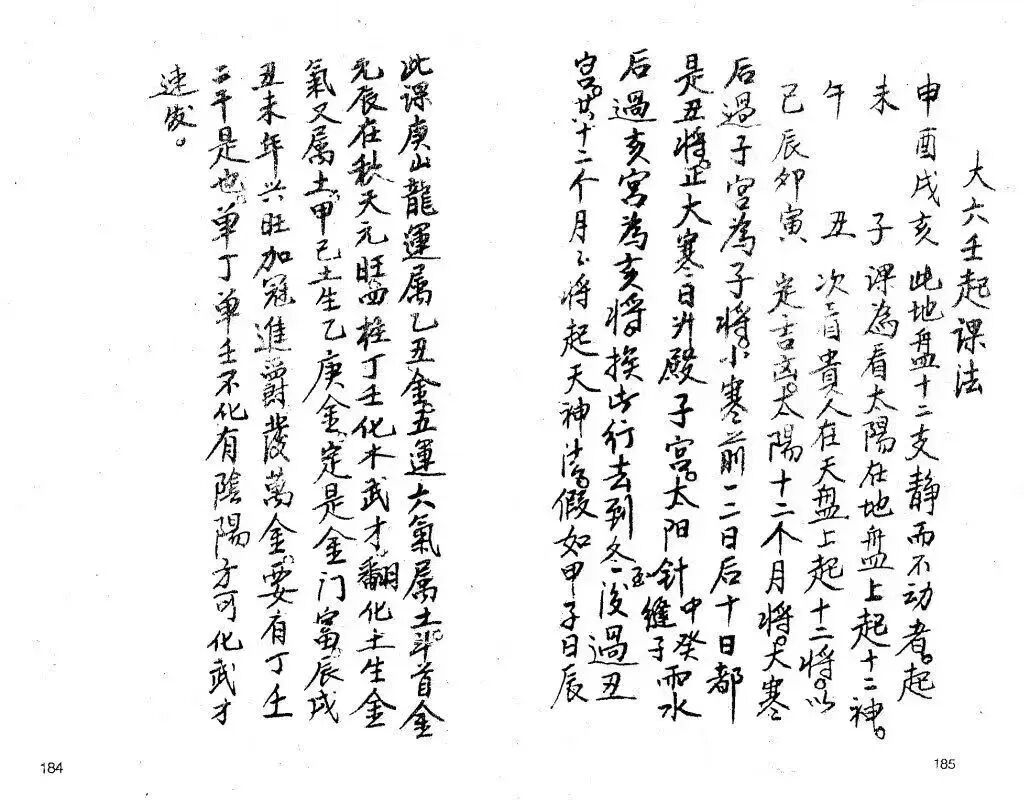 大六壬起课法
申酉戌亥 此地盘十二支静而不动者。起
未 子 课為看太陽在地盘上起十二神。
午 丑 次看貴人在天盘上起十二将。以
巳辰卯寅 定吉凶。太陽十二个月将。大寒
后過子宫為子将。小寒前一二日后十日都
是丑将。正大寒日升殿子宫。太阳针中癸缝子雨水
后過亥宫為亥将。挨此行去到冬至後過丑
宫。共十二个月之将起天神法。假如甲子日辰
185
此课庚山龍運属乙丑金。五運六氣属土。斗首金
元辰在秋天元旺。四柱丁壬化木武才。翻化土生金
氣又属土。甲己土生乙庚金。定是金门富。辰戌
丑未年兴旺加冠進爵發萬金。要有丁壬
二干是也。单丁单壬不化有陰陽方可化武才
速发。
184